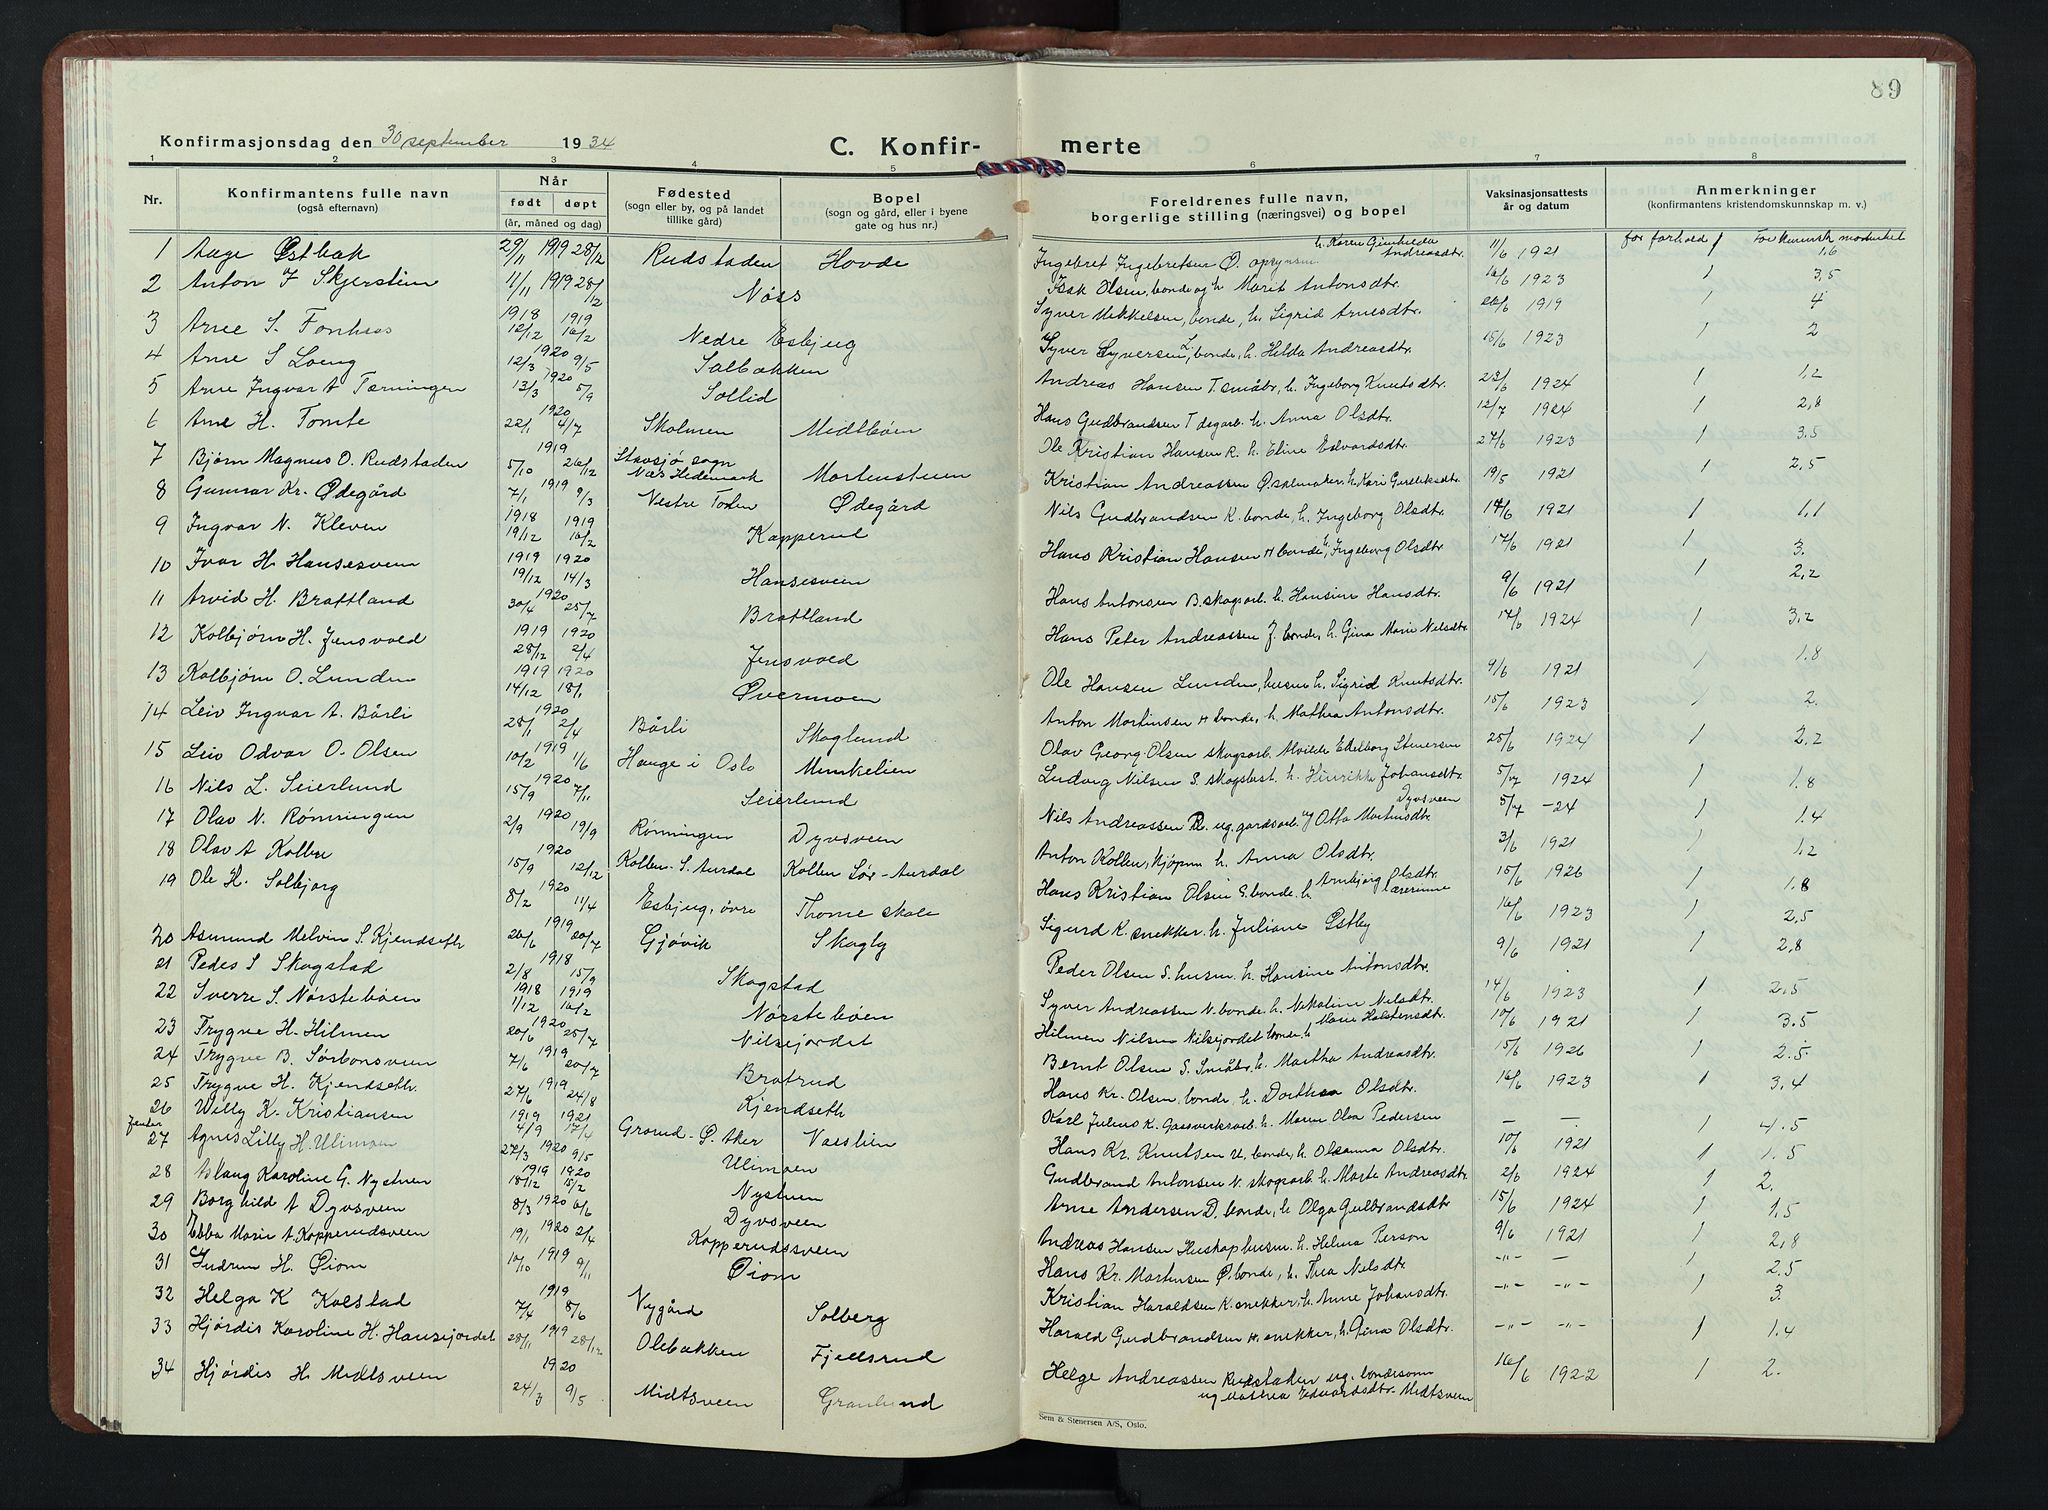 89
Konfirmasjonsdag den 30 september 1934
C. Konfir- merte
1 2 3 4 5 6 7 8
Nr. Konfirmantens fulle navn (også efternavn) Når født døpt (år, måned og dag) Fødested (sogn eller by, og på landet tillike gård) Bopel (sogn og gård, eller i byene gate og hus nr.) Foreldrenes fulle navn, borgerlige stilling (næringsvei) og bopel Vaksinasjonsattests år og datum Anmerkninger (konfirmantens kristendomskunnskap m. v.)
for forhold
1 Aage Østbak 29/11 1919 28/12 Rudstaden Hovde Ingebret Ingebretsen Ø. h. Karen Gunhilda Andreasdtr. 11/6 1921 1 1,6
2 Anton I Skjerstein 11/11 1919 28/12 Nøss Isak Olsen, bonde og h. Marit Antonsdtr. 16/6 1923 1 3,5
3 Arne S. Fonhus 1918 12/12 1919 16/2 Nedre Esbjug Syver Mikkelsen, bonde, h. Sigrid Arnesdtr. 26/6 1919 1 4
4 Arne S Loeng 1920 12/3 9/5 Solbakken Syver Syversen L., bonde, h. Hilda Andreasdtr. 15/6 1923 1 2
5 Arne Ingvar A Tærningen 1920 13/3 5/9 Sollid Andreas Hansen T. småbr, h. Ingeborg Knutsdtr. 23/6 1924 1 1,2
6 Arne H. Tomte 1920 22/1 4/7 Skolmen Midtbøen Hans Gudbrandsen T dagarb. h. Anna Olsdtr. 12/7 1924 1 2,8
7 Bjørn Magnus O. Rudstaden 1919 5/10 26/12 Stavsjø sogn Næs Hedemark Mortensteen Ole Kristian Hansen R. h. Eline Edvardsdtr. 27/6 1923 1 3.5
8 Gunnar Kr. Ødegård 1919 7/1 9/3 Vestre Toten Ødegård Kristian Andreassen Ø. salmaker, h. Kari Gulliksdtr. 19/5 1921 1 2,5
9 Ingvar N. Kleven 1918 19/12 1919 16/2 Kopperud Nils Gudbrandsen K. bonde, h. Ingeborg Olsdtr. 17/6 1921 1 1,1
10 Ivar H. Hansesveen 1919 19/12 1920 14/3 Hansesveen Hans Kristian Hansen H bonde, h. Ingeborg Olsdtr. 17/6 1921 1 3.
11 Arvid H. Brattland 1920 30/4 25/7 Brattland Hans Antonsen B. skogsarb. h. Hansine Hansdtr. 9/6 1921 1 2,2
12 Kolbjørn H. Jensvold 1919 28/12 1920 2/4 Jensvold Hans Peter Andreassen J. bonde, h. Gina Marie Nilsdtr. 17/6 1924 1 3,2
13 Kolbjørn O. Lunden 1919 14/12 1920 18/1 Øvermoen Ole Hansen Lunden, husm h. Sigrid Knutsdtr. 9/6 1921 1 1.8
14 Leiv Ingvar A. Bårli 1920 28/1 2/4 Bårli Skoglund Anton Mortinsen H bonde, h. Mathea Antonsdtr. 15/6 1923 1 2.
15 Leiv Odvar O. Olsen 1919 10/2 1/6 Hauge i Oslo Munkelien Olav Georg Olsen skogsarb. Edelborg Stenersen 25/6 1924 1 2,2
16 Nils L. Seierlund 1920 15/9 7/11 Seierlund Ludvig Nilsen S. skogsbest. h. Hinrikke Johansdtr. 5/7 1924 1 1.8
17 Olav N. Rønningen 1920 2/9 19/9 Rønningen Dyvsveen Nils Andreassen R. ug. gardsarb. og Otta Martinsdtr. Dyvsveen 5/7 -24 1 1.4
18 Olav A Kolben 1920 15/9 12/12 Kolben S. Aurdal Kolben Sør-Aurdal Anton Kolben, kjøpm h. Anna Olsdtr. 3/6 1921 1 1,2
19 Ole H. Solbjørg 1920 8/2 11/4 Esbjug, øvre Thome skole Hans Kristian Olsen S. bonde. h. Arnbjørg Olsdtr. lærerinne 15/6 1926 1 1.8
20 Asmund Melvin S. Kjendseth 1919 26/6 20/7 Gjøvik Skogly Sigurd K. snekker. h. Juliane Østby 16/6 1923 1 2,5
21 Peder S Skogstad 1918 2/8 15/9 Skogstad Peder Olsen S. husm. h. Hansine Antonsdtr. 9/6 1921 1 2,8
22 Sverre S. Nørstebøen 1918 1/12 1919 16/2 Nørstebøen Syver Andreassen N. bonde. h. Nikoline Nilsdtr. 14/6 1923 1 2.5
23 Trygve H. Hilmen 1920 20/6 25/7 Nilsejordet Hilmen Nilsen Nilsejordet bonde, h. Marie Halstensdtr. 10/6 1921 1 3.5
24 Trygve B. Sørbonsveen 1919 7/6 20/7 Bratrud Bernt Olsen S. småbr. h. Martha Andreasdtr. 15/6 1926 1 2.5.
25 Trygve H. Kjendseth. 1919 27/6 24/8 Kjendseth Hans Kr. Olsen, bonde, h. Dorthea Olsdtr. 16/6 1923 1 3,4
26 Willy K. Kristiansen 1919 4/9 1921 17/4 Grorud - Ø. Aker Vasslien Karl Julius K. Gassverksarb. h. Maren Olea Pedersen — — 1 4.5
Jenter
27 Agnes Lilly H. Ulimoen 27/3 1920 9/5 Ulimoen Hans Kr. Knutsen U, bonde, h. Oleanna Olsdtr. 10/6 1921 1 1.5
28 Aslaug Karoline G. Nystuen 1919 18/12 1920 15/2 Nystuen Gudbrand Antonsen N. skogsarb. h. Marte Andreasdtr. 2/6 1924 1 2.
29 Borghild A Dyvsveen 8/3 1920 6/6 Dyvsveen Arne Andersen D. bonde, h. Olga Gulbrandsdtr 15/6 1924 1 1,5
30 Ebba Marie A. Kopperudsveen 19/1 1920 2/4 Kopperudsveen Andreas Hansen husm. h. Helma Person 9/6 1921 1 2,8
31 Gudrun H. Øiom 10/10 1919 9/11 Øiom Hans Kr. Mortensen Ø. bonde, h. Thea Nilsdtr. -"- — 1 2.5
32 Helga K Kolstad 1919 7/4 8/6 Nygård Solberg Kristian Haraldsen K. snekker, h. Anne Johansdtr. -"- -"- 1 3.
33 Hjørdis Karoline H. Hansejordet 28/11 1919 28/12 Olebakken Fjellsrud Harald Gudbrandsen H. snekker, h. Gina Olsdtr. -"- -"- 1 1.4
34 Hjørdis H. Midtsveen 1920 24/3 9/5 Midtsveen Granlund Helge Andreassen Rudstaden ug. bondesønn og ug Mathea Edvardsdtr. Midtsveen 16/6 1922 1 2.
Sem & Stenersen A/S, Oslo.